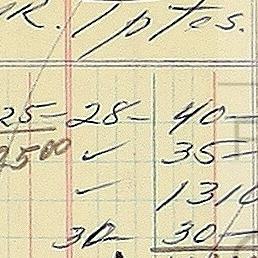 R. 1 ptos.
25- 28- 40-
2500 ✓ 35-
✓ 1310
30- 30-